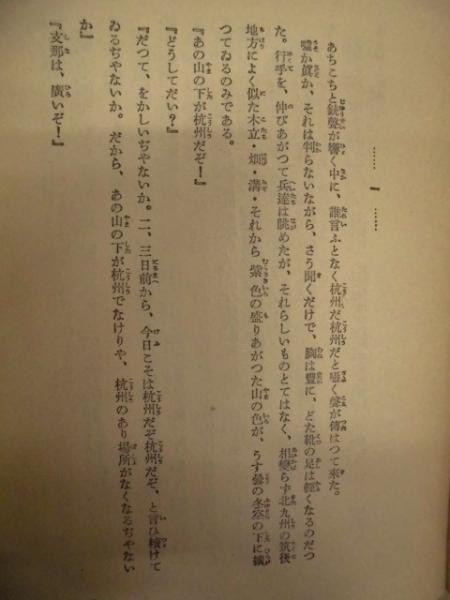 …… 一 ……
あちこちと銃聲が響く中に、誰言ふとなく杭州だ杭州だと囁く聲が傳はつて來た。
嘘か眞か、それは判らないながら、さう聞くだけで、胸は豐に、どた靴の足は輕くなるのだつ
た。行手を、伸びあがつて兵達は眺めたが、それらしいものとてはなく、相變らず北九州の筑後
地方によく似た木立・畑・溝・それから紫色の盛りあがつた山の色が、うす曇の冬空の下に續
つてゐるのみである。
『あの山の下が杭州だぞ！』
『どうしてだい？』
『だつて、をかしいぢやないか。二、三日前から、今日こそは杭州だぞ杭州だぞ、と言ひ續けて
ゐるぢやないか。だから、あの山の下が杭州でなけりや、杭州のあり場所がなくなるぢやない
か』
『支那は、廣いぞ！』